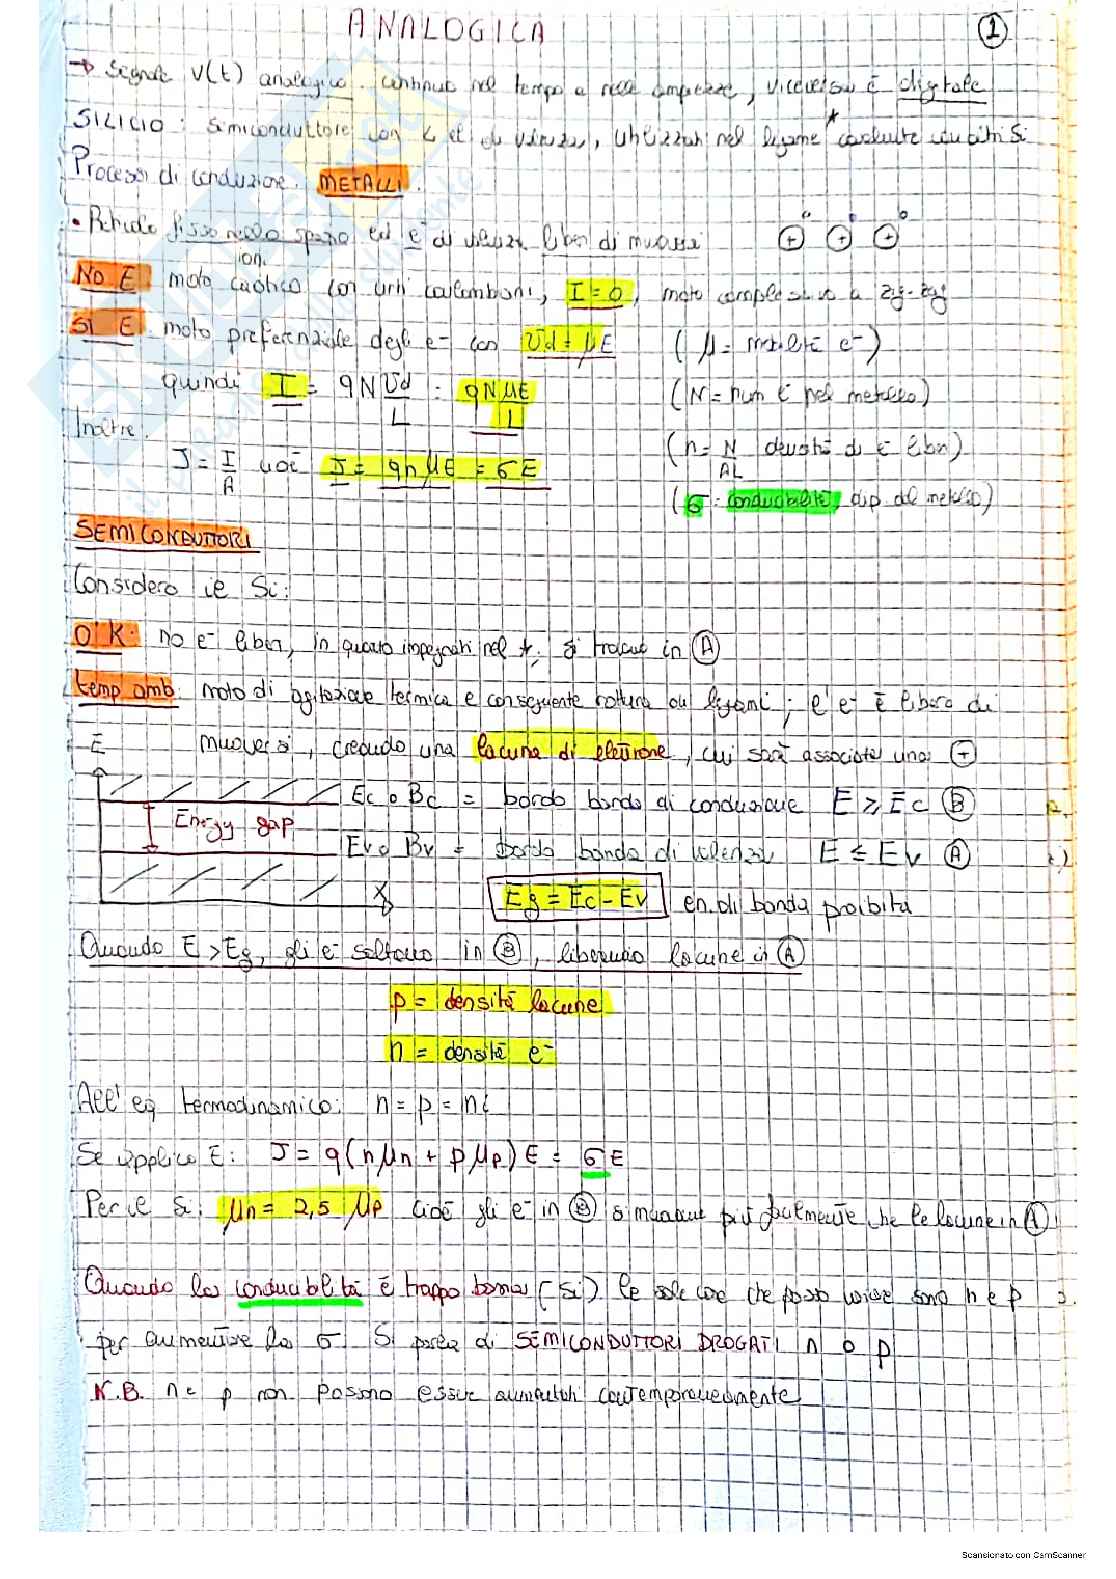 ANALOGICA
1
→ Segnale V(t) analogico: continuo nel tempo e nelle ampiezze, viceversa è digitale
SILICIO: Semiconduttore con 4 e⁻ di valenza, utilizzati nel legame * covalente con altri Si
Processi di conduzione: METALLI:
• Reticolo fisso nello spazio ed e⁻ di valenza liberi di muoversi
ioni
No E moto caotico con urti coulombiani, I=0, moto complessivo a zig-zag
Sì E moto preferenziale degli e⁻ con Vd=μE (μ= mobilità e⁻)
quindi I = qN Vd/L = qNμE/L (N= num e⁻ nel metallo)
Inoltre: (n= N/AL densità di e⁻ liberi)
J = I/A cioè J = qnμE = σE
(σ: conducibilità, dip dal metallo)
SEMICONDUTTORI
Considero il Si:
0°K: no e⁻ liberi, in quanto impegnati nel *; si trovano in A
temp amb: moto di agitazione termica e conseguente rottura di legami; l'e⁻ è libero di
E muoversi, creando una lacuna di elettrone, cui sarà associata una +
Ec o Bc = bordo banda di conduzione E ≥ Ec B
Energy gap
Ev o Bv = bordo banda di valenza E ≤ Ev A
x
Eg = Ec - Ev en. di banda proibita
Quando E > Eg, gli e⁻ saltano in B, liberando lacune in A
p = densità lacune
n = densità e⁻
All'eq termodinamico: n = p = ni
Se applico E: J = q(nμn + pμp)E = σE
Per il Si: μn = 2,5 μp cioè gli e⁻ in B si muovono più facilmente che le lacune in A
Quando la conducibilità è troppo bassa (Si) le sole cose che posso variare sono n e p
per aumentare la σ. Si parla di SEMICONDUTTORI DROGATI n o p
N.B. n e p non possono essere aumentati contemporaneamente
Scansionato con CamScanner